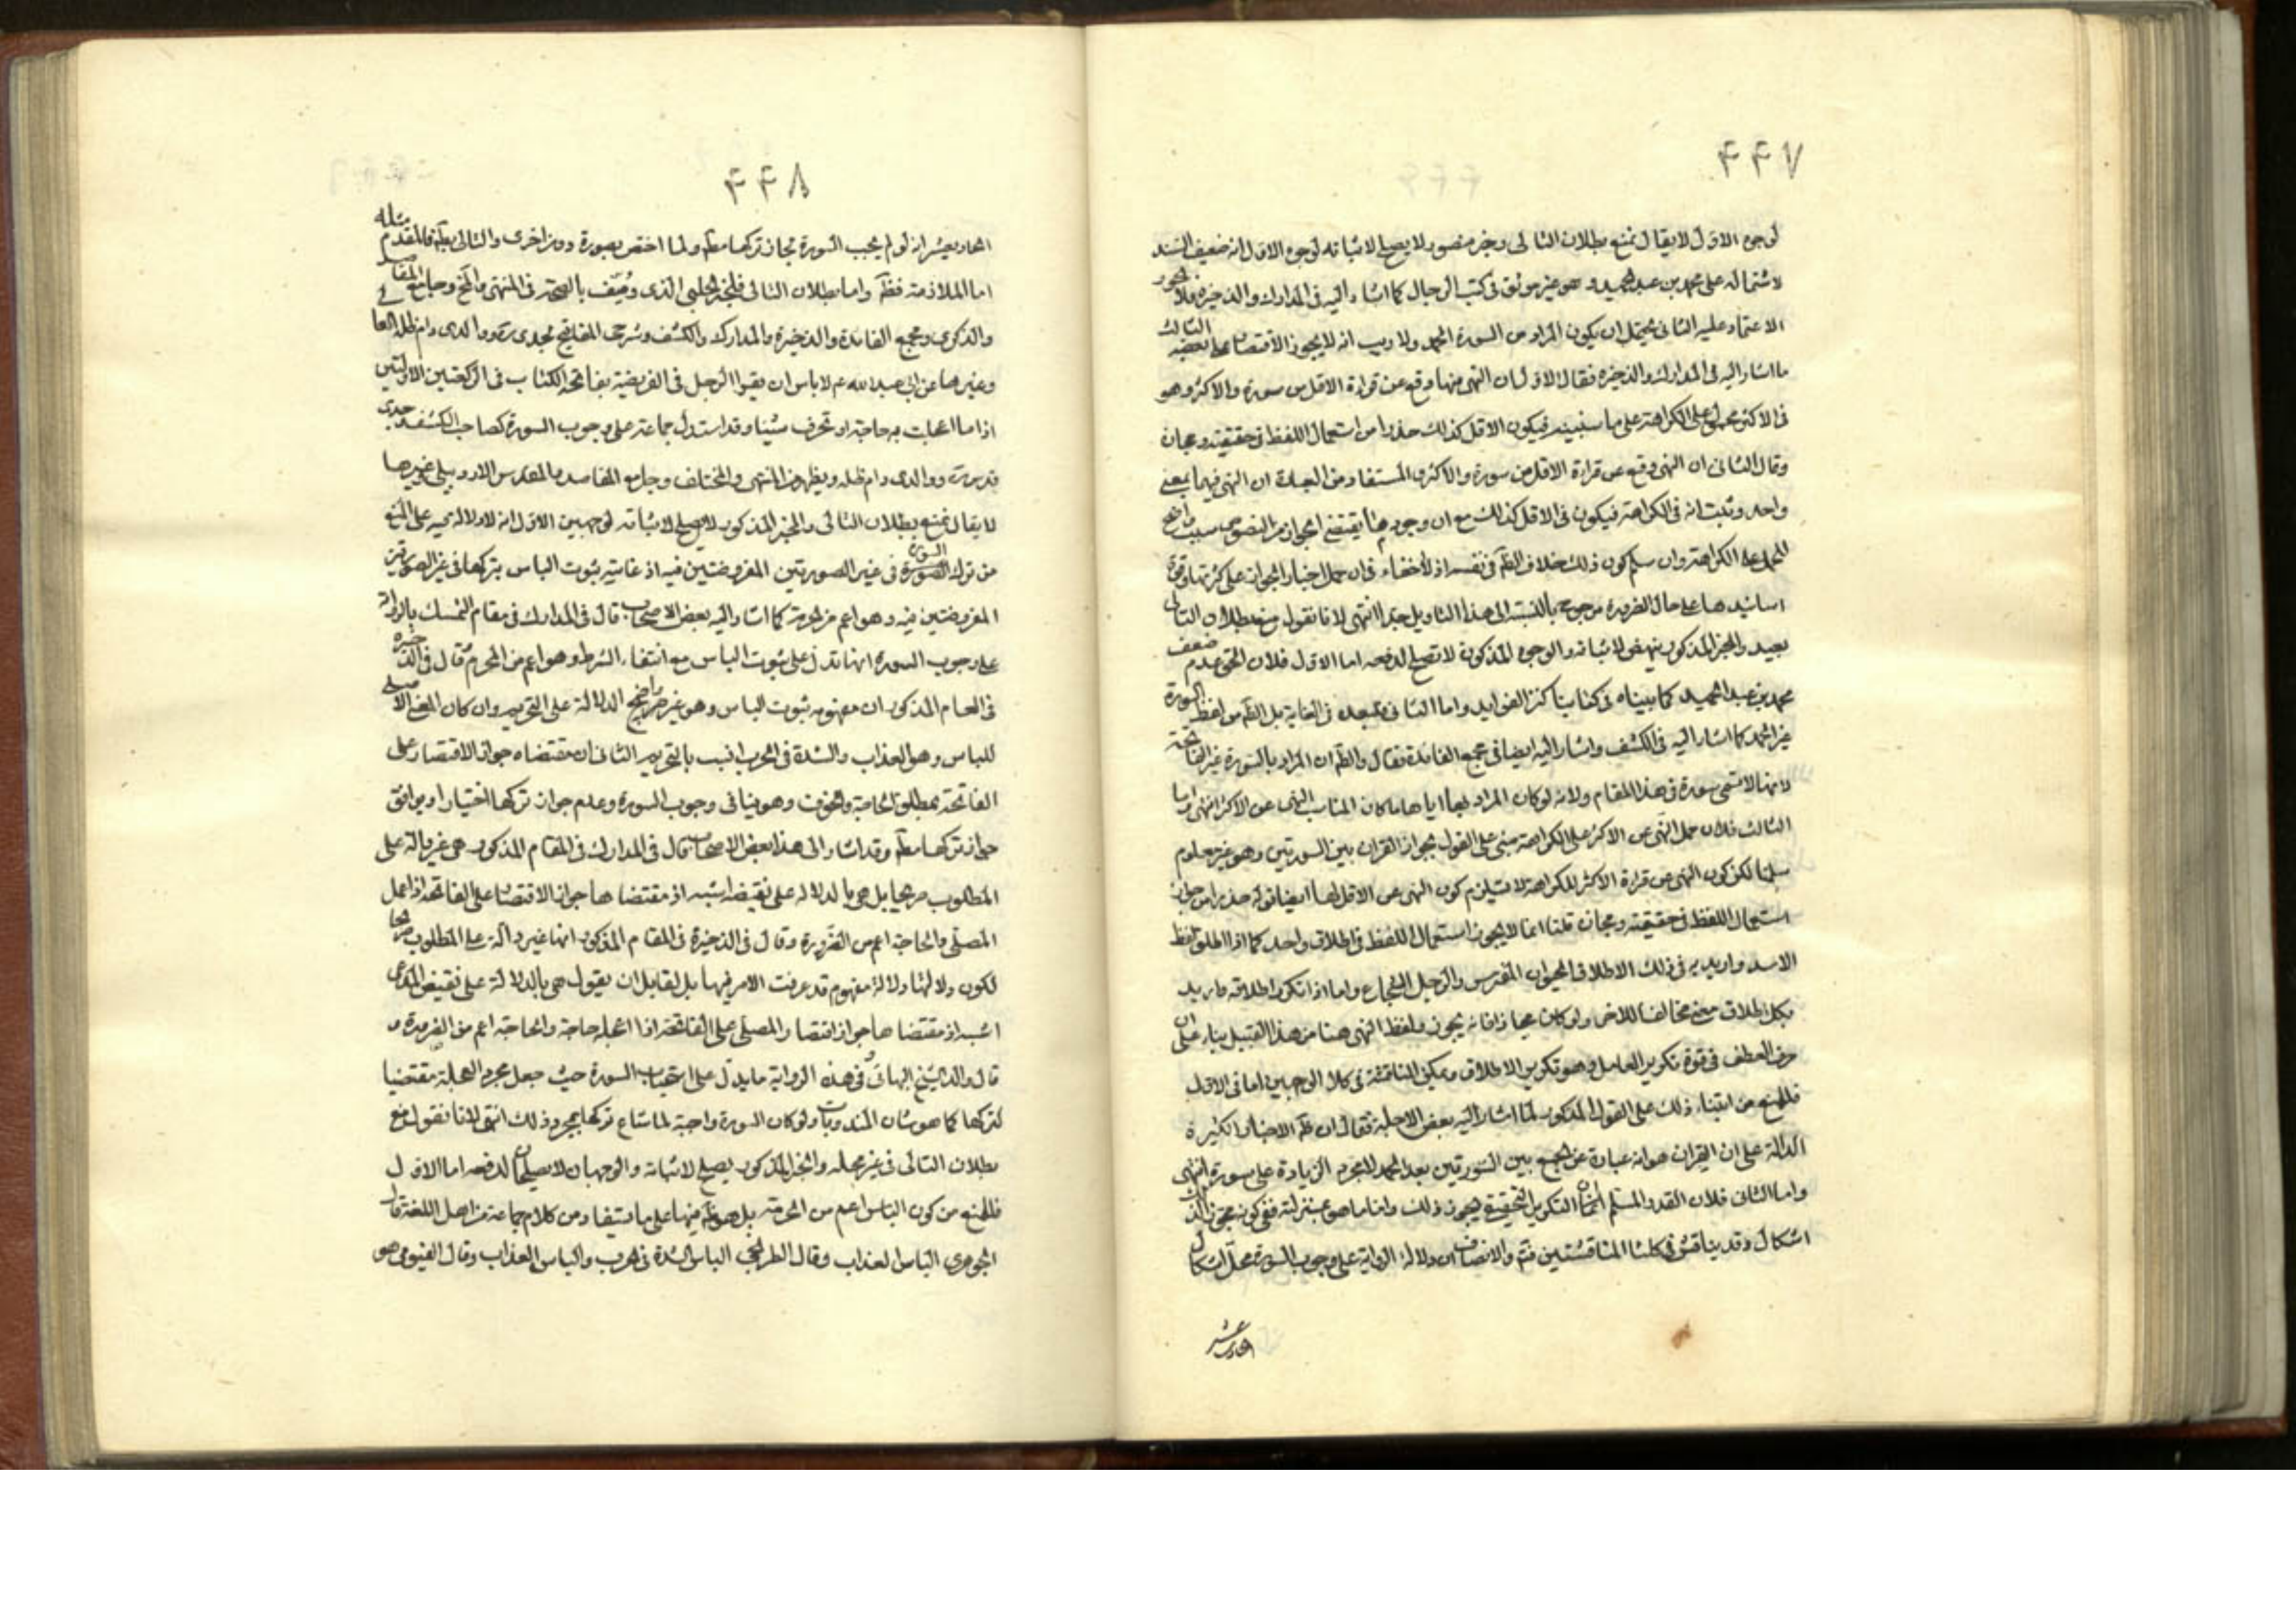 ۴۴۷
لوجوه الاول لا يقال نمنع بطلان التالى وخبر منصور لا يصلح لاثباته لوجوه الاول انه ضعيف السند
لاشتماله على محمد بن عبد الحميد وهو غير موثق فى كتب الرجال كما اشار اليه فى المدارك والذخيرة فلا يجوز
الاعتماد عليه الثانى يحتمل ان يكون المراد من السورة الحمد ولا ريب انه لا يجوز الاقتصار على بعضه الثالث
ما اشار اليه فى المدارك والذخيرة فقال الاول ان النهى فيها وقع عن قراءة الاقل من سورة والاكثر وهو
فى الاكثر محمول على الكراهة على ما سنبينه فيكون الاقل كذلك حذرا من استعمال اللفظ فى حقيقته ومجازه
وقال الثانى ان النهى وقع عن قراءة الاقل من سورة والاكثر والمستفاد من العبارة ان النهى فيهما بمعنى
واحد وثبت انه فى الكراهة فيكون فى الاقل كذلك مع ان وجود ما يقتضى الجواز من النصوص سبب واضح
للحمل على الكراهة وان سلم كون ذلك خلاف الظم فى نفسه اذ لا خفاء فى ان حمل اخبار الجواز على كثرتها وقوة
اسانيدها على حال الضرورة مرجوح بالنسبة الى هذا التاويل جدا انتهى لانا نقول منع بطلان التالى
بعيد والخبر المذكور ينهض لاثباته والوجوه المذكورة لا تصلح لدفعه اما الاول فلان الحق عدم ضعف
محمد بن عبد الحميد كما بيناه فى كتابنا كنز الفوايد واما الثانى فبعيد فى الغاية بل الظم من لفظ السورة
غير الحمد كما اشار اليه فى الكشف واشار اليه ايضا فى مجمع الفائدة فقال والظم ان المراد بالسورة غير الفاتحة
لانها لا تسمى سورة فى هذا المقام ولانه لو كان المراد بها اياها ما كان المناسب النهى عن الاكثر انتهى واما
الثالث فلان حمل النهى عن الاكثر على الكراهة مبنى على القول بجواز القران بين السورتين وهو غير معلوم
سلمنا لكن كون النهى عن قراءة الاكثر للكراهة لا يستلزم كون النهى عن الاقل لها ايضا قوله حذرا من
استعمال اللفظ فى حقيقته ومجازه قلنا انما لا يجوز استعمال اللفظ فى اطلاق واحد كما اذا اطلق لفظ
الاسد واريد به فى ذلك الاطلاق الحيوان المفترس والرجل الشجاع واما اذا تكرر اطلاقه واريد
بكل اطلاق معنى مخالفا للاخر ولو كان مجازا فانه يجوز ولفظ النهى هنا من هذا القبيل بناء على ان
حرف العطف فى قوة تكرير العامل وهو تكرير الاطلاق ويمكن المناقشة فى كلا الوجهين اما فى الاول
فللمنع من ابتناء ذلك على القول المذكور لما اشار اليه بعض الاجلة فقال ان ظم الاخبار الكثيرة
الدالة على ان القران هو انه عبارة عن الجمع بين السورتين بعد الحمد لا مجرد الزيادة على سورة انتهى
واما الثانى فلان القدر المسلم انما التكرير الحقيقة يجوز ذلك واما ما هو بمنزلته ففى كونه مجوز الذلك
اشكال وقد يناقش فى كلتا المناقشتين فتم والانصاف ان دلالة الرواية على وجوب السورة محل اشكال
الحادى عشر
۴۴۸
الحادى عشر انه لو لم يجب السورة لجاز تركها مطم ولما اختص بصورة دون اخرى والتالى بط فالمقدم مثله
اما الملازمة فظم واما بطلان التالى فلخبر الحلبى الذى وصف بالصحة فى المنتهى والمخ وجامع المقاصد
والذكرى ومجمع الفائدة والذخيرة والمدارك والكشف وشرح المفاتيح لجدى ره ووالدى دام ظله العا
وغيرها عن ابى عبد الله عم لا باس ان يقرا الرجل فى الفريضة بفاتحة الكتاب فى الركعتين الاولتين
اذا ما اعجلت به حاجة او تخوف شيئا وقد استدل جماعة على وجوب السورة كصاحب الكشف وجدى
قدس سره ووالدى دام ظله ويظهر من المنتهى والمختلف وجامع المقاصد والمقدس الاردبيلى وغيرها
لا يقال نمنع بطلان التالى والخبر المذكور لا يصلح لاثباته لوجهين الاول انه لا دلالة فيه على المنع
من ترك السورة فى غير الصورتين المفروضتين فيه اذ غايته ثبوت الباس بتركها فى غير الصورتين
المفروضتين فيه وهو اعم من الحرمة كما اشار اليه بعض الاصحاب قال فى المدارك فى مقام التمسك بالرواية
على وجوب السورة انها تدل على ثبوت الباس مع انتفاء الشرط وهو اعم من المحرم وقال فى الذخيرة
فى المقام المذكور ان مفهومه ثبوت الباس وهو غير واضح الدلالة على التحريم وان كان المعنى الاصلى
للباس وهو العذاب والشدة فى الحرب انسب بالتحريم الثانى ان مقتضاه جواز الاقتصار على
الفاتحة بمطلق الحاجة والخوف وهو ينافى وجوب السورة وعدم جواز تركها اختيارا ويوافق
جواز تركها مطم وقد اشار الى هذا بعض الاصحاب قال فى المدارك فى المقام المذكور هى غير دالة على
المطلوب صريحا بل هى بالدلالة على نقيضه اشبه اذ مقتضاها جواز الاقتصار على الفاتحة اذا اعجل
المصلى والحاجة اعم من الضرورة وقال فى الذخيرة فى المقام المذكور انها غير دالة على المطلوب صريحا
لكون دلالتها دلالة مفهوم قد عرفت الامر فيها بل لقايل ان يقول هى بالدلالة على نقيض المدعى
اشبه اذ مقتضاها جواز اقتصار المصلى على الفاتحة اذا اعجله حاجة والحاجة اعم من الضرورة و
قال والد الشيخ البهائى فى هذه الرواية ما يدل على استحباب السورة حيث جعل مجرد العجلة مقتضيا
لتركها كما هو شان المندوبات ولو كان السورة واجبة لما ساغ تركها بمجرد ذلك انتهى لانا نقول منع
بطلان التالى فى غير محله والخبر المذكور يصلح لاثباته والوجهان لا يصلحان لدفعه اما الاول
فللمنع من كون الباس اعم من الحرمة بل هو ظم فيها على ما يستفاد من كلام جماعة من اهل اللغة قال
الجوهرى الباس العذاب وقال الطريحى الباس الشدة فى الحرب والباس العذاب وقال الفيومى هو